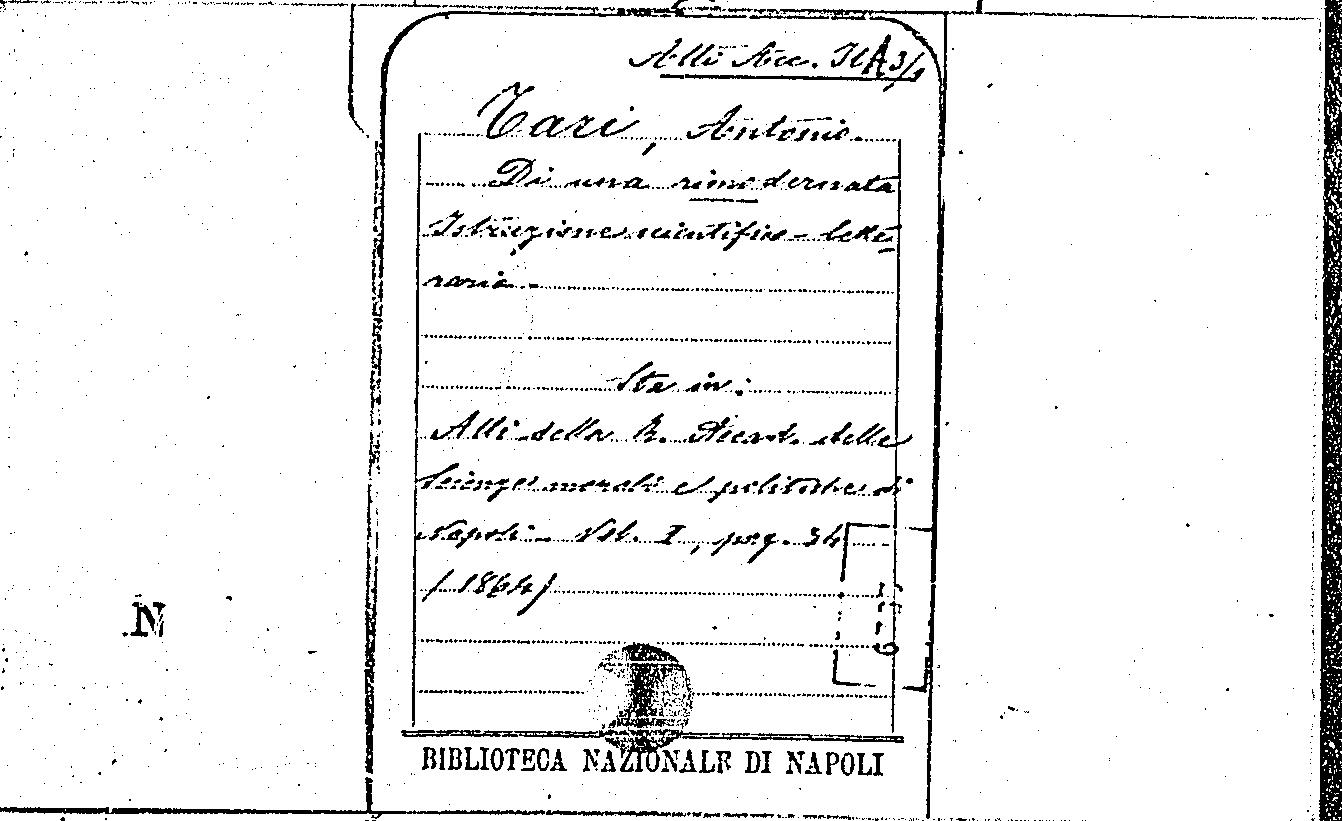 Atti Acc.
Tari, Antonio.
Di una rimodernata
Istruzione scientifico-lette
raria.
Sta in:
Atti della R. Accad. delle
Scienze morali e politiche di
Napoli - Vol. I, pag. 34
(1864)
N
BIBLIOTECA NAZIONALE DI NAPOLI